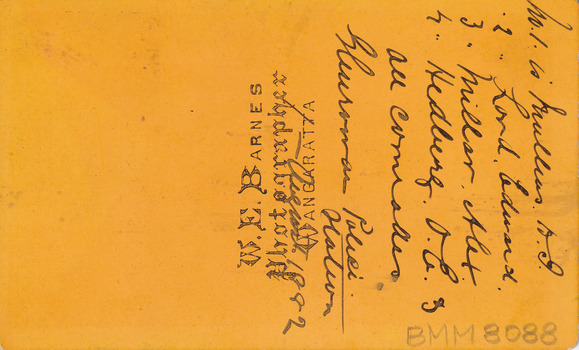 No. 1. is Mullins. D. J.
" 2 " Lond. Edward.
3 " Millar. Alex
4 " Hedberg. O. E. G
all comrades
Glenrowan Police
Station
August 1882
W. E. BARNES
Photographer
WANGARATTA
BMM 8088